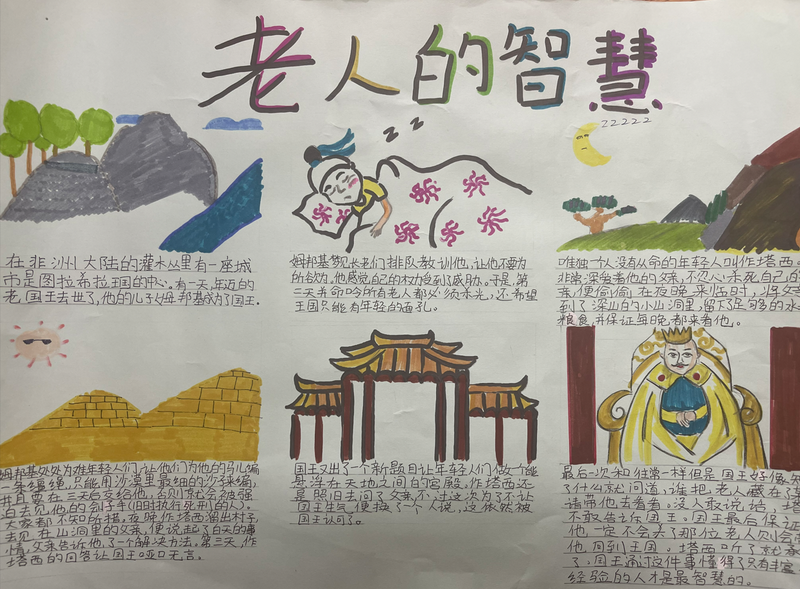 老人的智慧
z z
z z z z z
在非洲大陆的灌木丛里有一座城
市是图拉希拉王国的中心。有一天,年迈的
老国王去世了,他的儿子姆邦基成为了国王。
姆邦基觉长老们排队教训他,让他不要为
所欲为。他感觉自己的权力受到了威胁。于是,第
二天,命令所有老人都必须杀光,还希望
王国只能有年轻的面孔。
唯独一个人没有从命的年轻人叫作塔西。
非常深爱着他的父亲,不忍心杀死自己的
亲,便偷偷在夜晚来临时,将父
到了深山的小山洞里,留下足够的水
粮食,并保证每晚都来看他。
姆邦基处处为难年轻人们,让他们为他的马儿编
一条缰绳,只能用沙漠里最细的沙子来编,
并且要在三天后交给他,否则就会被强
白去见他的刽子手(旧时执行死刑的人)。
大家都不知所措,夜晚作塔西溜出村子,
去见在山洞里的父亲,便说起了白天的事
情,父亲告诉他了一个解决方法,第三天,作
塔西的回答让国王哑口无言。
国王又出了一个新题目让年轻人们做个能
悬浮在天地之间的宫殿,作塔西还
是照旧去问了父亲,不过这次为了不让
国王生气,便换了个人说,这依然被
国王认可了。
最后一次和往常一样但是国王好像知
了什么就问道,谁把老人藏在了
请带他去看看。没人敢说话,塔
不敢告诉国王。国王最后保证
他一定不会杀了那位老人则会
他回到王国。塔西听了就
了,国王通过这件事懂得了只有丰富
经验的人才是最智慧的。